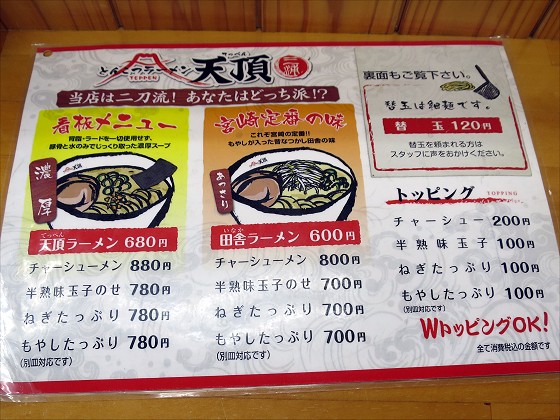 とんこつラーメン
TEPPEN
てっぺん
天頂
当店は二刀流！あなたはどっち派!?
看板メニュー
背脂・ラードを一切使用せず、
豚骨と水のみでじっくり取った濃厚スープ
濃厚
てっぺん
天頂ラーメン 680円
チャーシューメン 880円
半熟味玉子のせ 780円
ねぎたっぷり 780円
もやしたっぷり 780円
(別皿対応です)
宮崎定番の味
これぞ宮崎の定番!!
もやしが入った昔なつかし田舎の味
あっさり
いなか
田舎ラーメン 600円
チャーシューメン 800円
半熟味玉子のせ 700円
ねぎたっぷり 700円
もやしたっぷり 700円
(別皿対応です)
裏面もご覧下さい。
替玉は細麺です。
替玉 120円
替玉を頼まれる方は
スタッフに声をおかけください。
トッピング TOPPING
チャーシュー 200円
半熟味玉子 100円
ねぎたっぷり 100円
もやしたっぷり 100円
(別皿対応です)
WトッピングOK!
全て消費税込の金額です